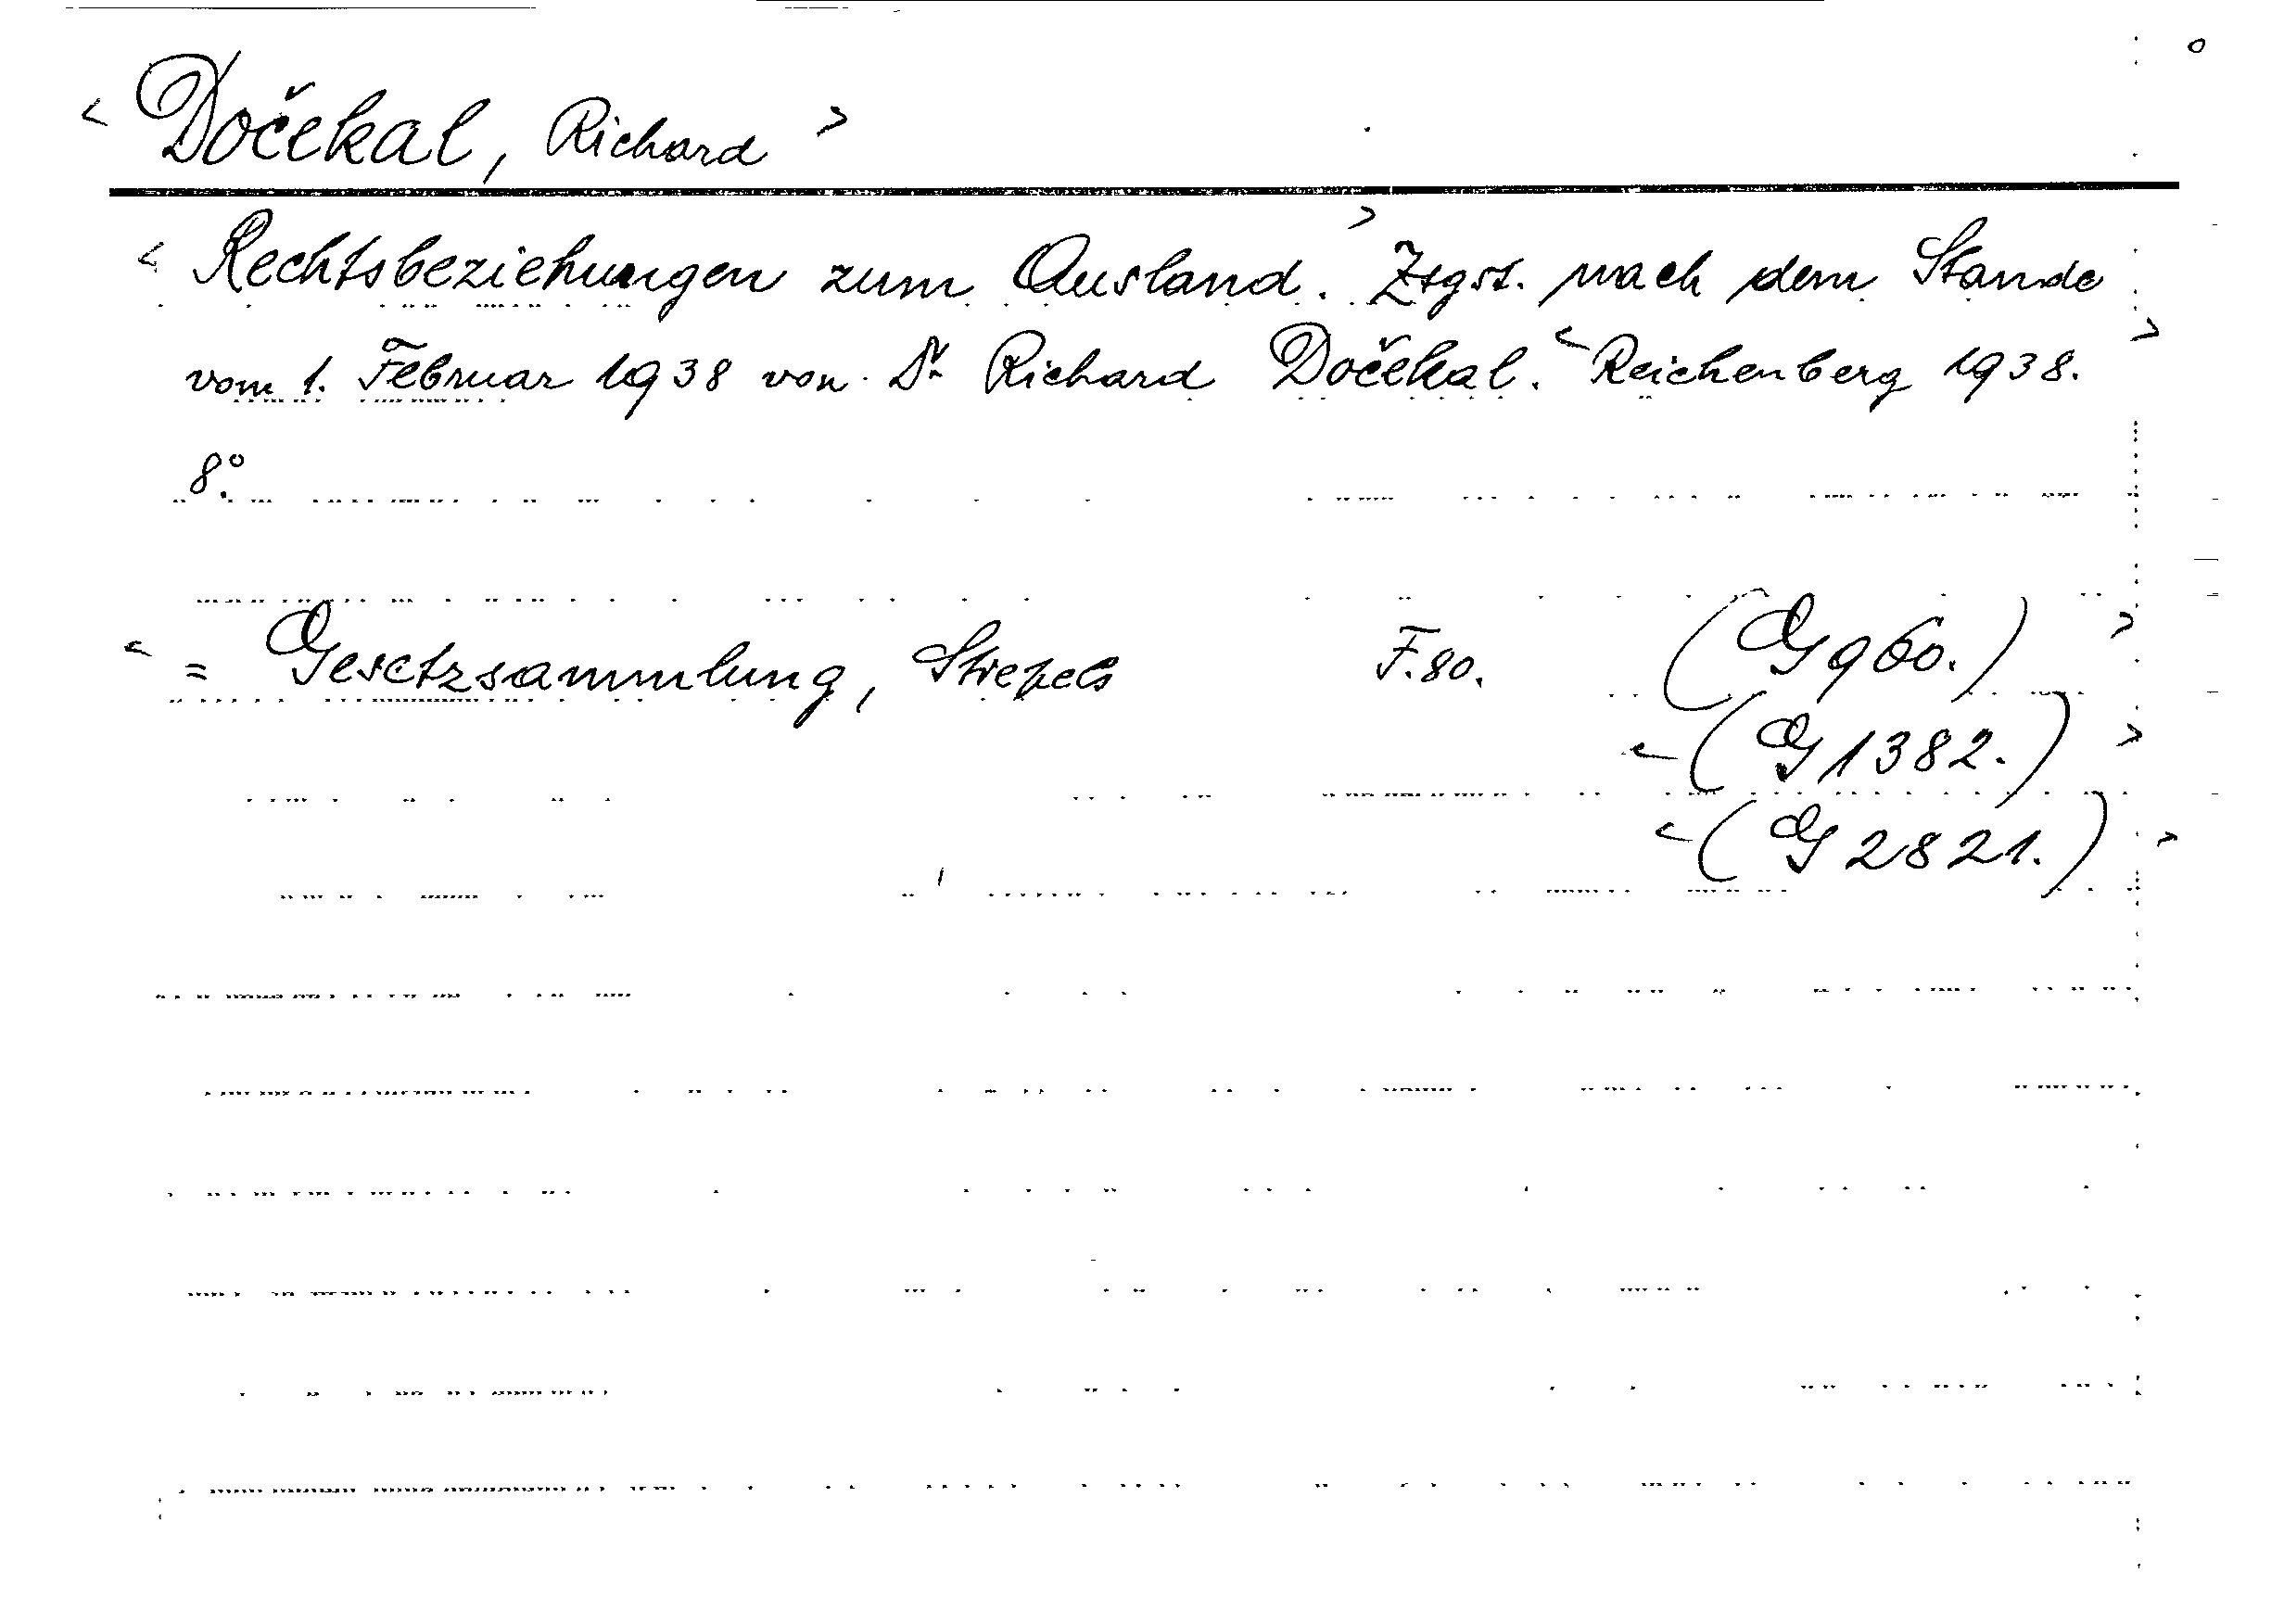 < Dočekal, Richard >
< Rechtsbeziehungen zum Ausland. > Zsgst. nach dem Stande
vom 1. Februar 1938 von Dr Richard Dočekal. < Reichenberg 1938. >
8°.
< = Gesetzsammlung, Stiepels F.80. (G 960.) >
< (G 1382.) >
< (G 2821.) >